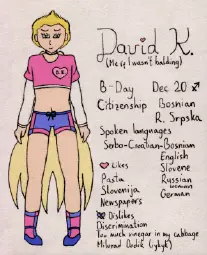 David K.
(Me if I wasn't balding)
B-Day Dec 20 ♐
Citizenship Bosnian
R. Srpska
Spoken languages
Serbo-Croatian-Bosnian
English
Slovene
Russian
German
Likes
Pasta
Slovenija
Newspapers
Dislikes
Discrimination
Too much vinegar in my cabbage
Milorad Dodik (iykyk)